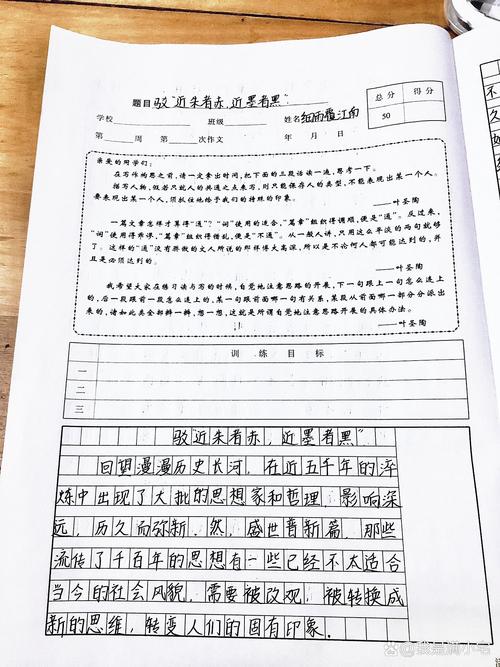 题目 驳"近朱者赤,近墨者黑"
总分 得分
50
学校 班级 姓名 细雨覆江南
第 周 第 次作文 年 月 日
亲爱的同学们:
在写作构思之前,请一定拿出时间,把下面的三段话读一遍,思考一下。
描写人物,假若只就人的共通之点来写,则只能保存人的类型,不能表现出某一个人。
要表现出某一个人,须抓住他给予我们的特殊的印象。
——叶圣陶
一篇文章怎样才算得"通"?"词"使用的适合,"篇章"组织得调顺,便是"通"。反过来,
"词"使用得乖谬,"篇章"组织得错乱,便是"不通"。从一般人讲,只用这么平淡的两句就够
了。这样的"通"没有骄傲的文人所说的那样博大高深,所以是不论何人都可能达到的,并
且是必须达到的。
——叶圣陶
我希望大家在练习读与写的时候,自觉地注意思路的开展,下一句跟上一句怎么连上
的,后一段跟前一段怎么连上的,某一句跟前面哪一句有关系,某段从前面哪一部分分派出
来的,诸如此类全部辨一辨,想一想,这就是所谓自觉地注意思路开展的具体办法。
——叶圣陶
训练目标
一
二
三
驳"近朱者赤,近墨者黑"
回望漫漫历史长河,在近五千年的淬
炼中出现了大批的思想家和哲理,影响深
远,历久而弥新.然,盛世普新篇,那些
流传了千百年的思想有一些已经不太适合
当今的社会风貌,需要被改观,被转换成
新的思维,转变人们的固有印象.